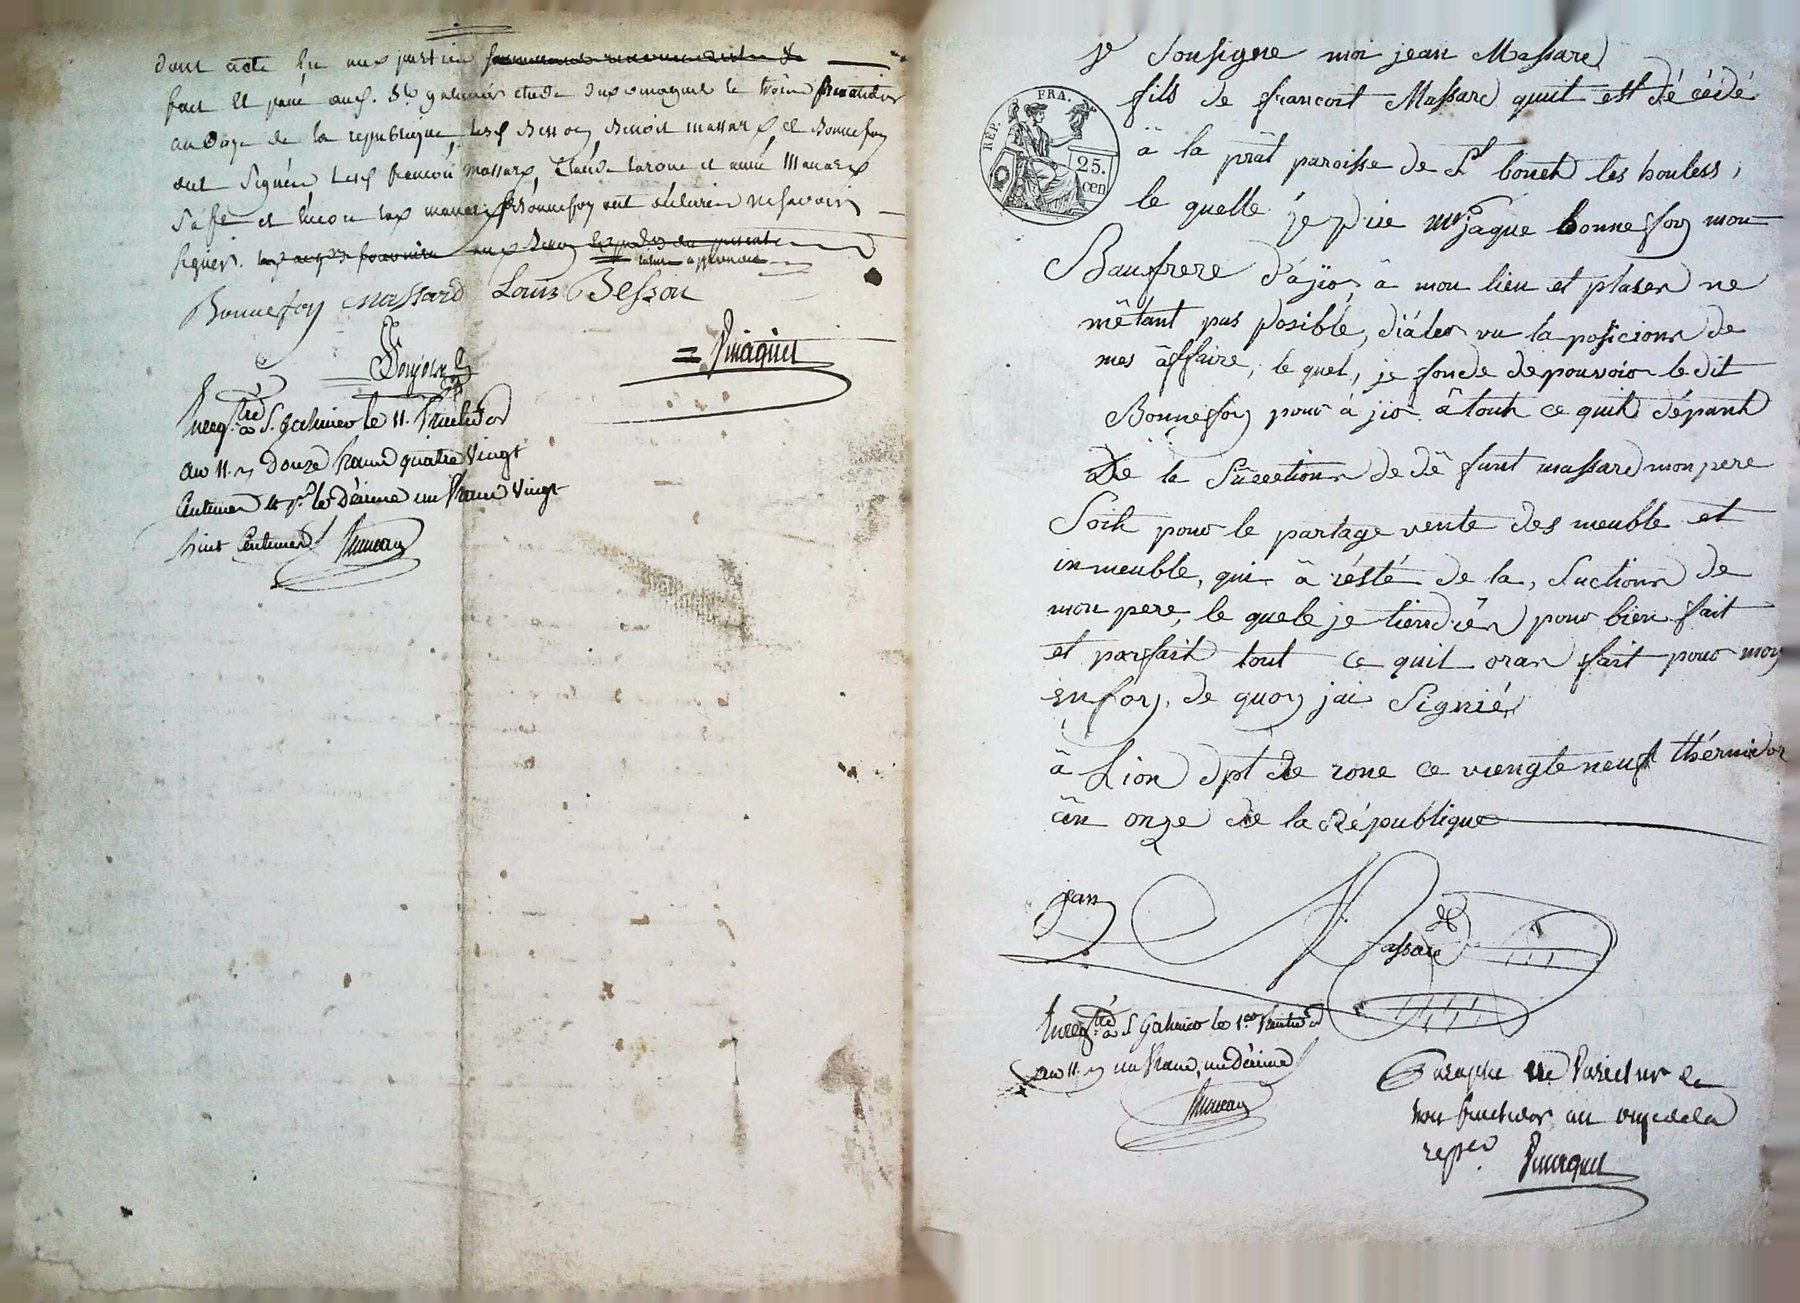 dont acte lu aux parties
fait et passé aud. St galmier etude dud. pinaquet le trois fructidor
an onze de la republique, lesd Besson, Benoit massard, et Bonnefoy
ont signés lesd francois massard, Claude
et encore led Bonnefoy ont déclaré ne savoir
signer.
Bonnefoy massard Louis Besson
= Pinaquet
Enregtré à St galmier le 11. fructidor
an 11. douze francs quatre vingt
centimes le décime un franc vingt
huit centimes
je Sousigne moi jean Massard
fils de francoit Massard quit est décédé
REP. FRA.
25.
cen
â la prât paroisse de St bonet les houless,
le quelle je prie mr jaque bonnefoy mon
Baufrere d'âjir â mon lieu et plasen ne
mêtant pas posible, diáler vu la posicions de
mes âffaire, le quel, je fonde de pouvoir le dit
Bonnefoy pour â jir â tout ce quit dépant
De la Suiections de dê funt massard mon pere
Soit pour le partage vente des meuble et
inmeuble, qui â résté de la, Suctions de
mon pere, le quele je tiendrer pour bien fait
et parfait tout ce quit oran fait pour moy
en foy, de quoy jai Signié
â Lion dpt de rone ce viengteneuf thérmidor
ân onze de la République
jean Massard
Enregtré à St Galmier le 1er fructidor
an 11. un franc, un décime
Paraphé ne varietur le
trois fructidor an onze de la
repub. Pinaquet